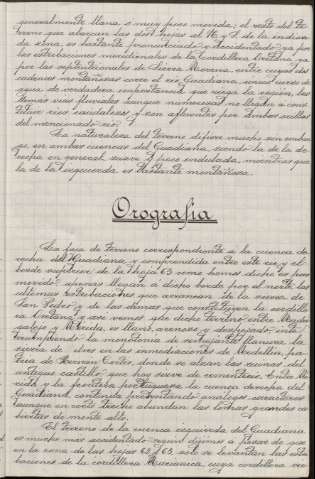 generalmente llana ó muy poco movida; el resto del te-
rreno que abarcan las dos hojas al N. y S. de la indica-
da zona, es bastante pronunciado y accidentado ya por
las estribaciones meridionales de la Cordillera Oretana, ya
por las septentrionales de Sierra Morena, entre cuyas dos
cadenas montañosas corre el río Guadiana, único curso de
agua de verdadera importancia que riega la región; los
demás vías fluviales aunque numerosas no llegan a cons-
tituir ríos caudalosos y son afluentes por ambas orillas
del mencionado río.
La naturaleza del terreno difiere mucho sin embar-
go, en ambas cuencas del Guadiana, siendo la de la de-
recha en general, suave y poco ondulada, mientras que
la de la izquierda es bastante montañosa.
Orografía
La faja de terreno correspondiente a la cuenca de-
recha del Guadiana y comprendida entre este río y el
borde superior de la hoja 63 como hemos dicho es poco
movida; apenas llegan a dicho borde por el norte las
últimas estribaciones que arrancan de la sierra de
San Pedro y de las demás que constituyen la cordille-
ra Oretana, y así vemos este dicho terreno entre
y Mérida, es llano, arenoso y despejado inte-
rrumpiendo la monotonía de semejante llanura, la
sierra de en las inmediaciones de Medellín, pa-
Cortés, donde se alzan las ruinas del
antiguo castillo que hoy sirve de cementerio. Entre Mé-
rida y la frontera portuguesa la cuenca derecha del
Guadiana, continúa presentando análogos caracteres
aunque en este trecho abundan las lomas grandes cu-
biertas de monte alto.
El terreno de la cuenca izquierda del Guadiana
es mucho más accidentado según dijimos a pesar de que
en la zona de las hojas 62 y 63, solo se levantan las estri-
baciones de la cordillera Mariánica, cuya cordillera ve-